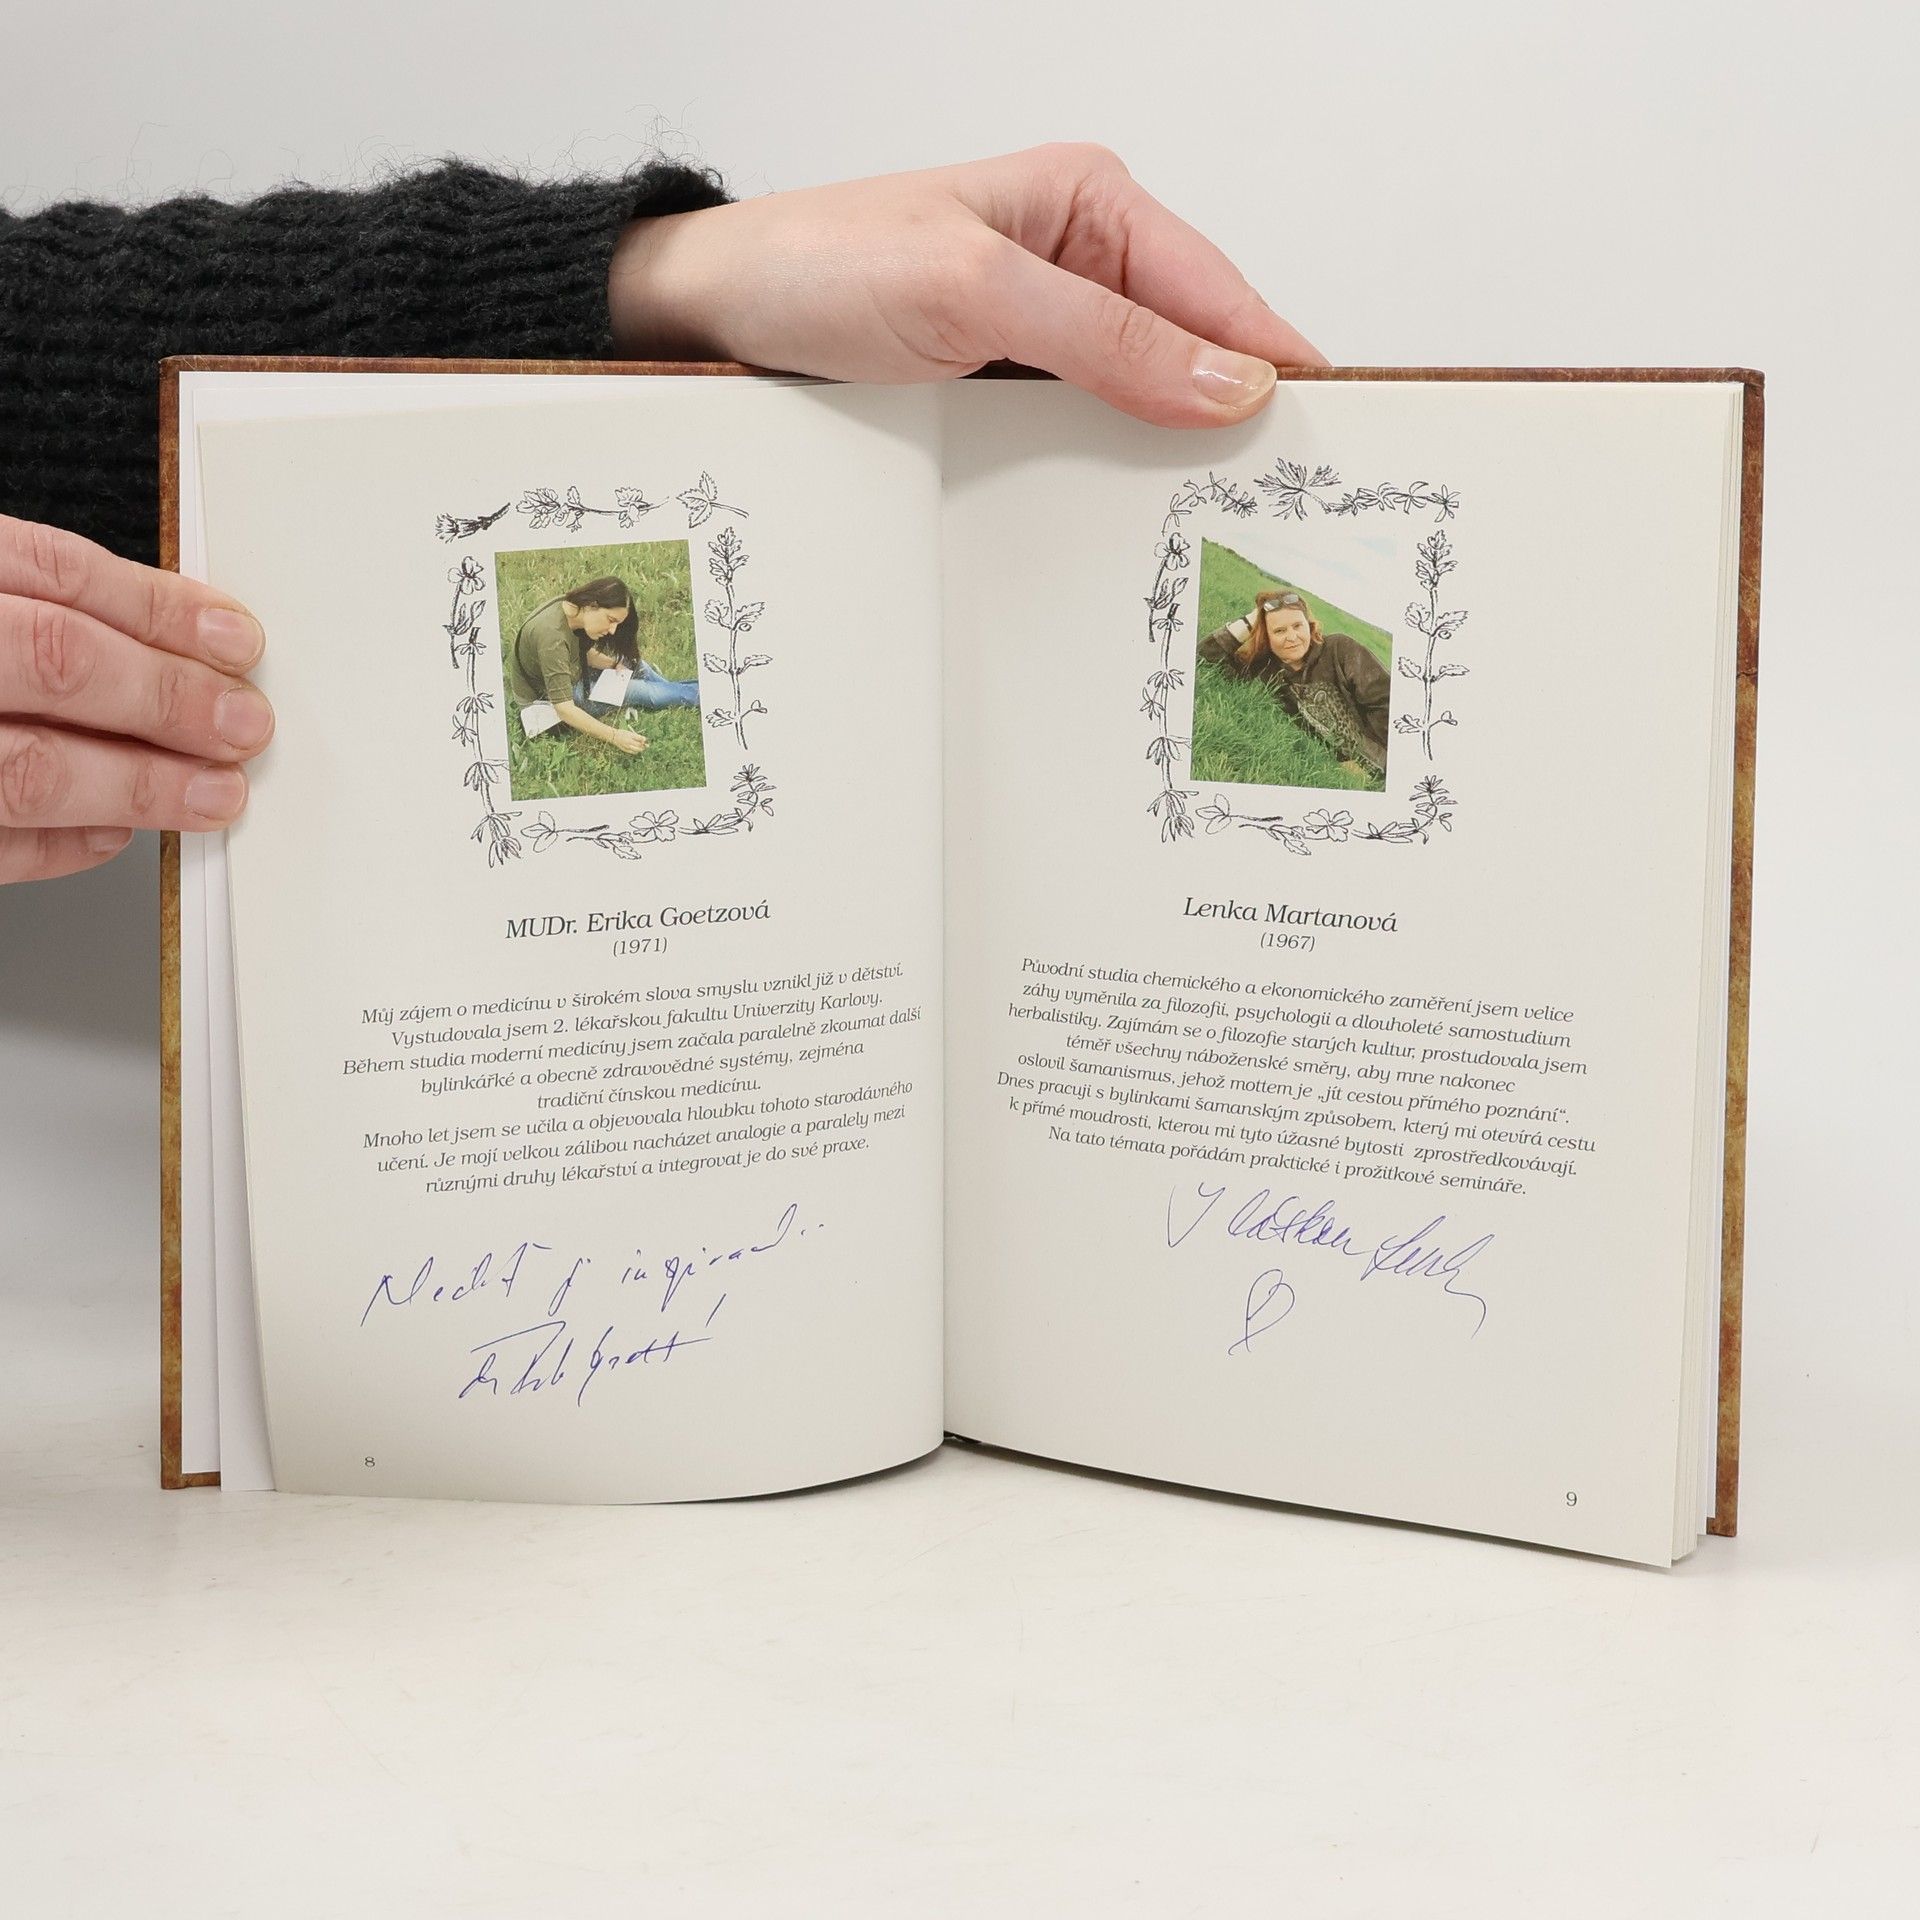 MUDr. Erika Goetzová
(1971)
Můj zájem o medicínu v širokém slova smyslu vznikl již v dětství.
Vystudovala jsem 2. lékařskou fakultu Univerzity Karlovy.
Během studia moderní medicíny jsem začala paralelně zkoumat další
bylinkářké a obecně zdravovědné systémy, zejména
tradiční čínskou medicínu.
Mnoho let jsem se učila a objevovala hloubku tohoto starodávného
učení. Je mojí velkou zálibou nacházet analogie a paralely mezi
různými druhy lékařství a integrovat je do své praxe.
Nechť je
8
Lenka Martanová
(1967)
Původní studia chemického a ekonomického zaměření jsem velice
záhy vyměnila za filozofii, psychologii a dlouholeté samostudium
herbalistiky. Zajímám se o filozofie starých kultur, prostudovala jsem
téměř všechny náboženské směry, aby mne nakonec
oslovil šamanismus, jehož mottem je „jít cestou přímého poznání“.
Dnes pracuji s bylinkami šamanským způsobem, který mi otevírá cestu
k přímé moudrosti, kterou mi tyto úžasné bytosti zprostředkovávají.
Na tato témata pořádám praktické i prožitkové semináře.
S láskou Lenka
9